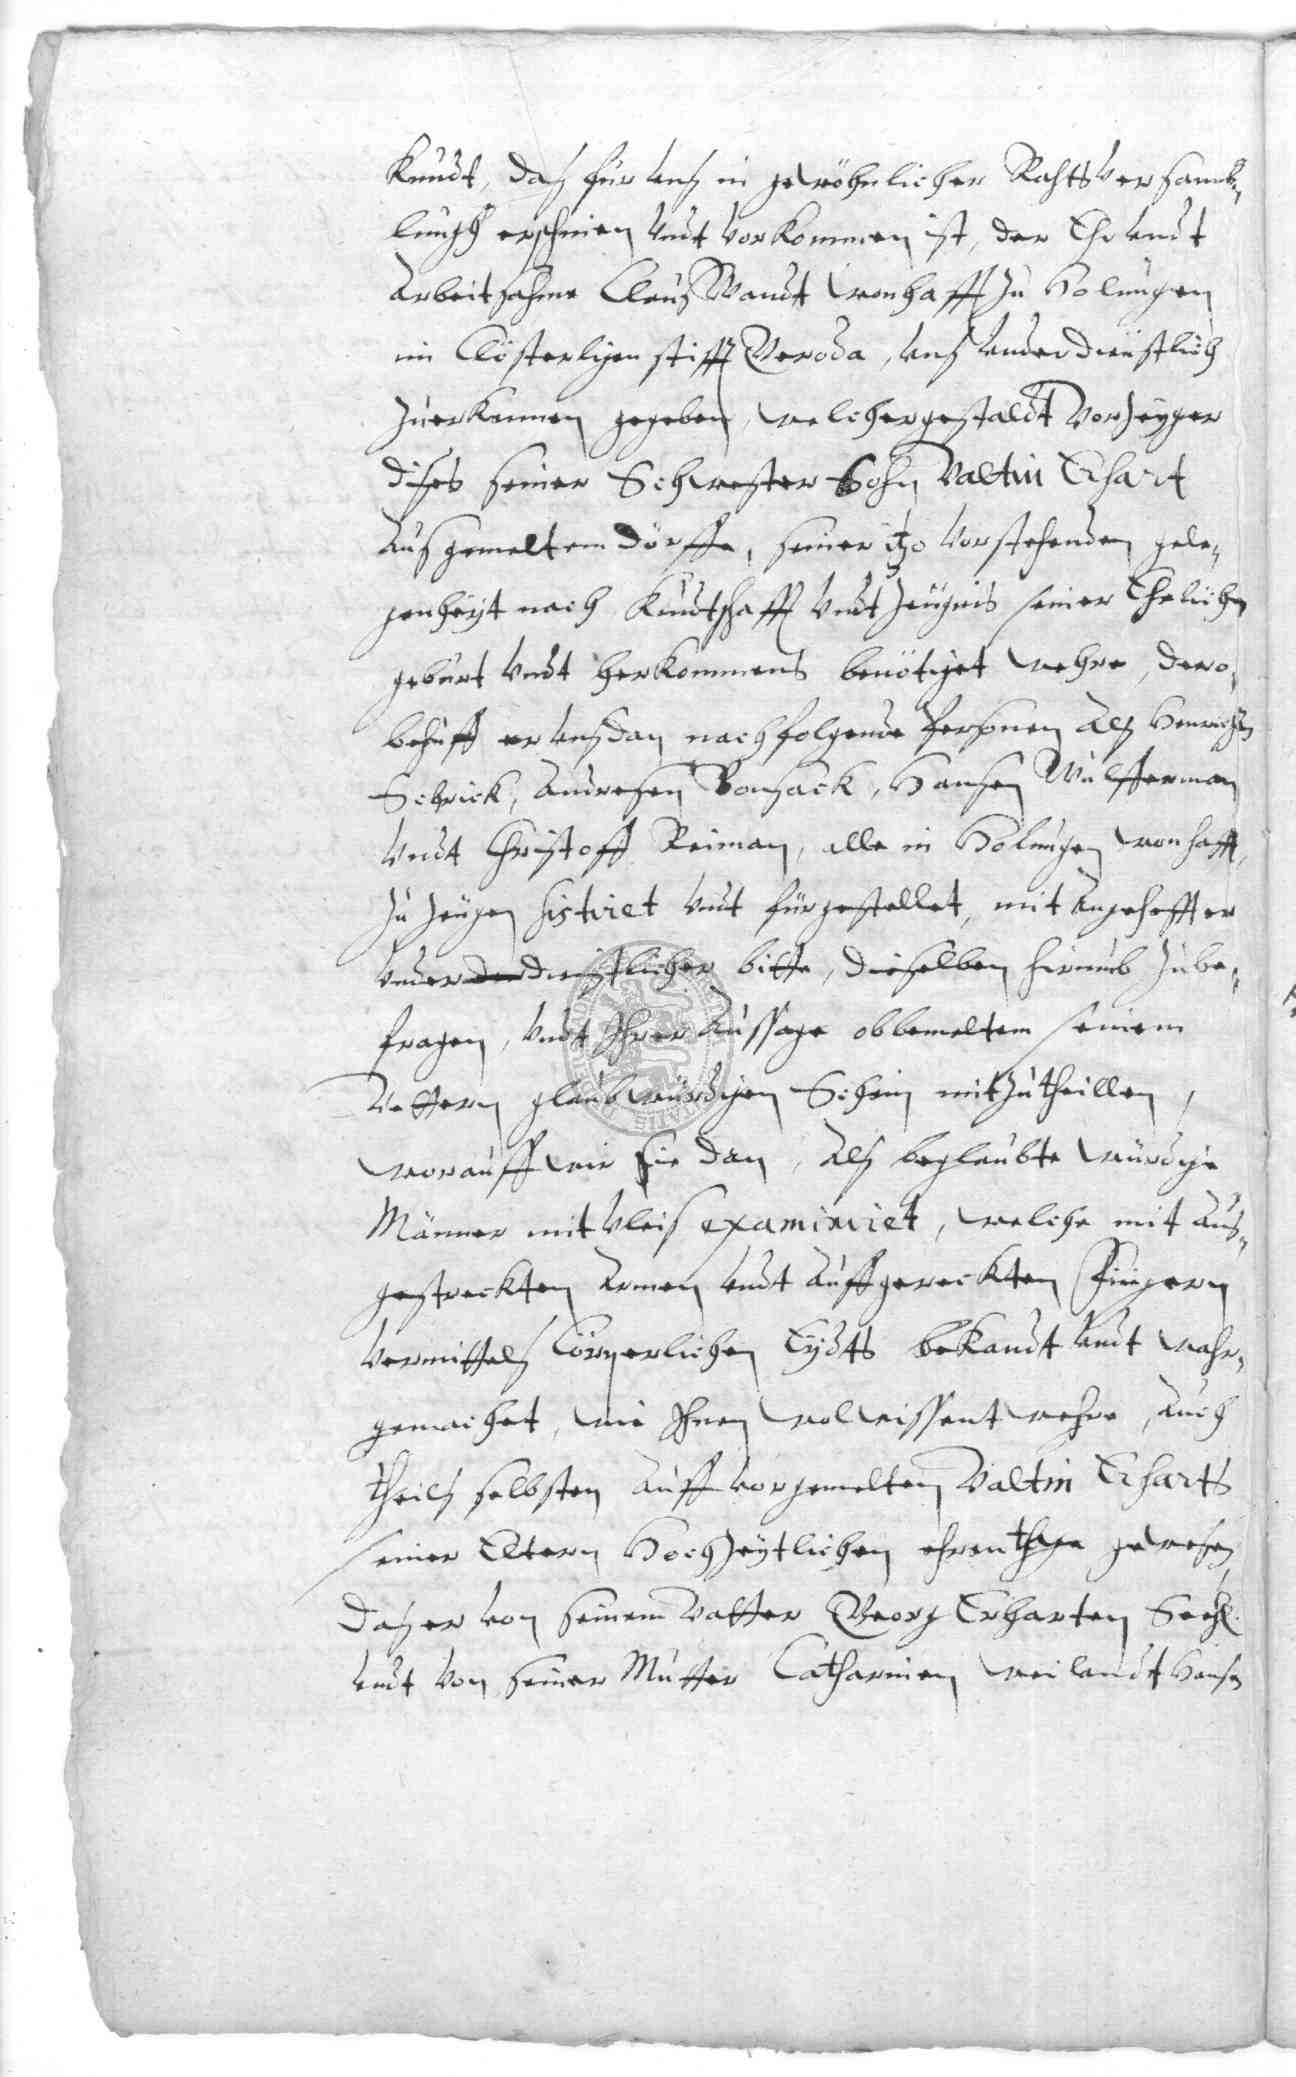 Kundt, daß für unß in gewöhnlicher Rahtsversamb-
lungh erschienen undt vorkommen ist, der Ehr undt
Arbeitsahme Clauß Wandt wonhafft zu Holungen
im Clösterlichen stifft Geroda, unß underdienstlich
zuerkennen gegeben, welchergestaldt vorzeyger
dises seiner Schwester Sohn Valtin Erhart
aus gemeltem Dörffe, seiner itzo vorstehenden gele-
genheyt nach Kundtschafft undt Zeugnis seiner Ehelichen
geburt undt herkommens benötiget wehre, dero,
behuff er unß dan nachfolgende Personen als Henrichen
Schrick, Andresen Bonsack, Hansen Wulfferman
undt Christoff Reiman, alle in Holungen wonhafft,
zu Zeugen sistiret undt fürgestellet, mit angeheffter
underdienstlicher bitte, dieselben hirumb zube-
fragen, undt Ihrer Aussage obbemeltem seinem
Vettern glaubwürdigen Schein mitzutheillen,
worauff wir sie dan, als beglaubte würdige
Männer mit vleis examiniret, welche mit aus-
gestreckten Armen undt auffgereckten Fingern
vermittels Cörperlichen Eydts bekandt undt wahr-
gemachet, wie Ihnen wol wissent wehre, auch
theils selbsten auff vorgemelten Valtin Erharts
seiner Eltern Hochzeytlichen ehrenthage gewesen
daß er von seinem Vatter Georg Erharten Seehl.
undt von seiner Mutter Catharinen weilandt Hansen